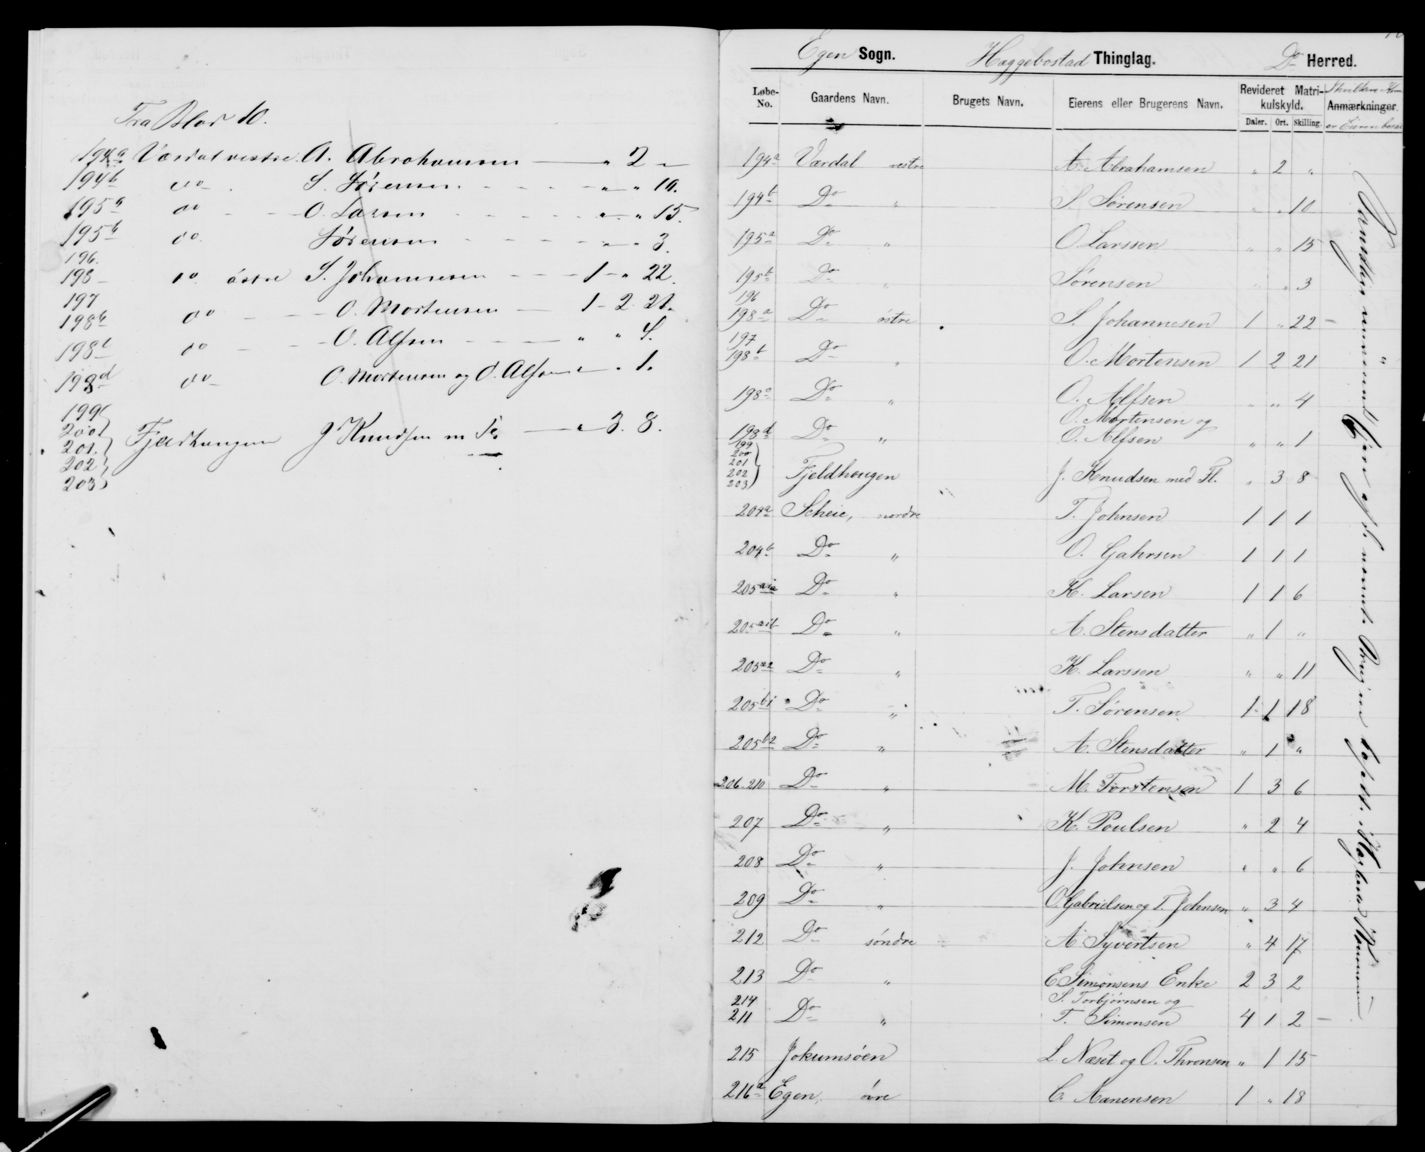 Fra Blad 10.
194a Værdal vestre A. Abrahamsen " 2 "
194b do S. Sørensen " " 10.
195a do O. Larsen " " 15.
195b do Sørensen " " 3.
196.
198 do østre S. Johannesen 1 " 22.
197
198b do O. Mortensen 1 2 21.
198c do O. Alfsen " " 4.
198d do O. Mortensen og O. Alfsen " " 1.
199
200
201. Fjeldhaugen J Knudsen m Fl. " 3. 8.
202
203
Egen Sogn. Hæggebostad Thinglag. Do Herred.
Løbe-No. Gaardens Navn. Brugets Navn. Eierens eller Brugerens Navn. Revideret Matrikulskyld. Anmærkninger.
Daler. Ort. Skilling.
194a Værdal vestre A. Abrahamsen " 2 "
194b Do " S. Sørensen " " 10
195a Do " O. Larssen " " 15
195b Do " Sørensen " " 3
196
198a Do østre S. Johannesen 1 " 22
197
198b Do " O. Mortensen 1 2 21
198c Do " O. Alfsen " " 4
198d Do " O. Mortensen og
O. Alfsen " " 1
199
200
201
202
203 Fjeldhougen J. Knudsen med Fl. " 3 8
204a Scheie, nordre T. Johnsen 1 1 1
204b Do " O. Gahrsen 1 1 1
205a1a Do " K. Larsen 1 1 6
205a1b Do " A. Stensdatter " 1 "
205a2 Do " K. Larssen " " 11
205b1 Do " T. Sørensen 1 1 18
205b2 Do " A. Stensdatter " 1 "
206.210 Do " M. Torstensen 1 3 6
207 Do " K. Poulsen " 2 4
208 Do " J. Johnsen " " 6
209 Do " O. Gabrielsen og T. Johnsen " 3 4
212 Do søndre A. Syvertsen " 4 17
213 Do " E Simonsens Enke 2 3 2
214
211 Do " S. Torbjørnsen og
T. Simonsen 4 1 2
215 Jokumsøen L. Næset og O. Thronsen " 1 15
216a Egen, øvre C. Aanensen 1 " 18